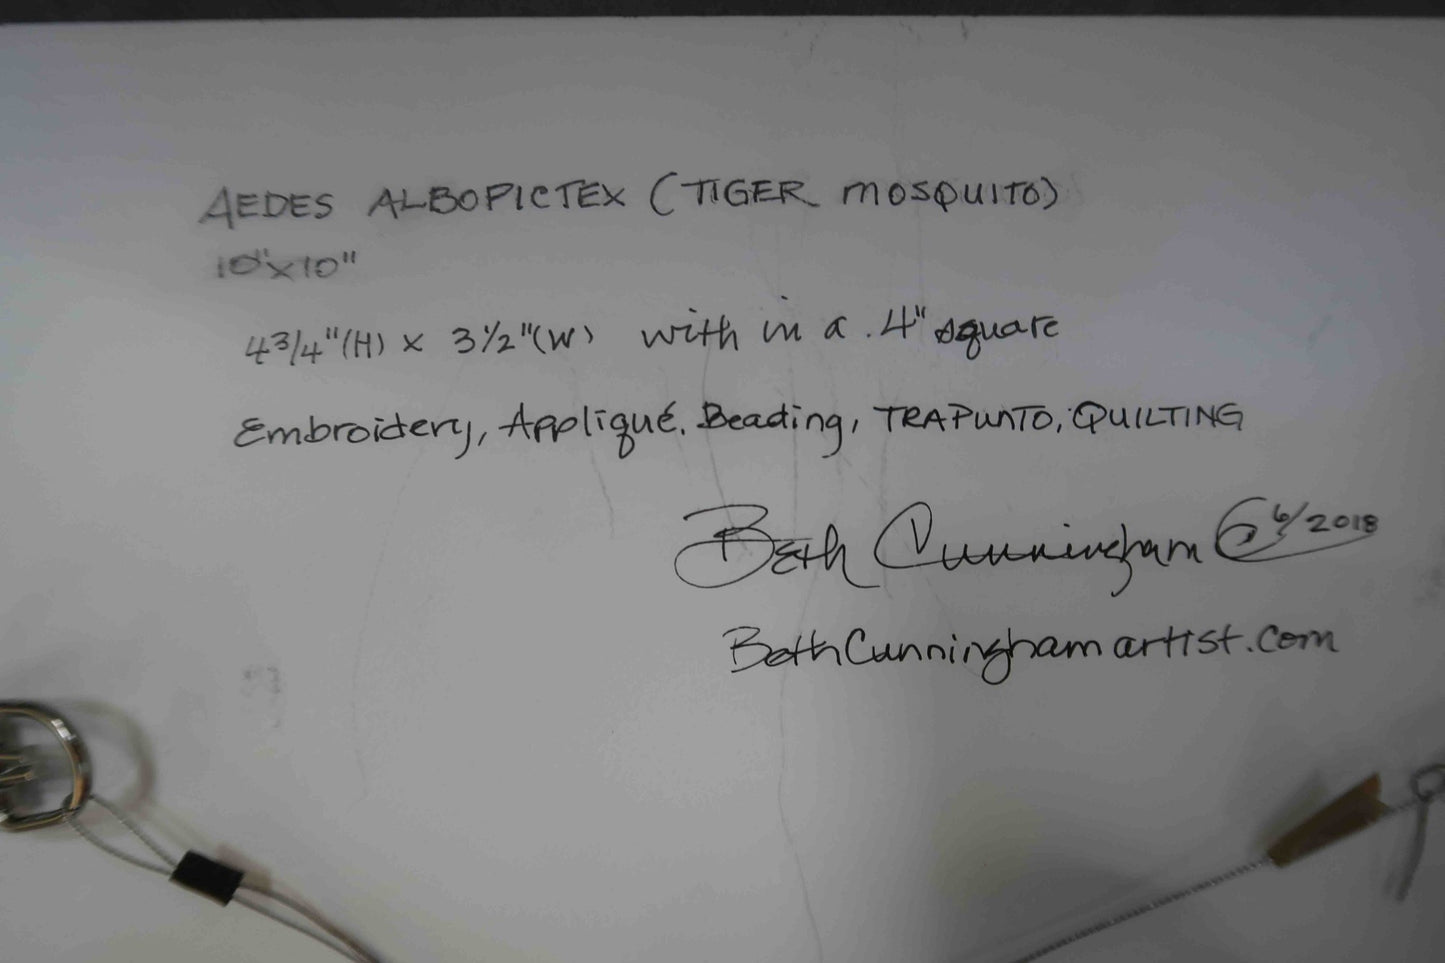 AEDES ALBOPICTEX (TIGER MOSQUITO)
10"x10"
4 3/4"(H) x 3 1/2"(W) with in a .4" square
Embroidery, Appliqué, Beading, TRAPUNTO, QUILTING
Beth Cunningham 6/2018
BethCunninghamartist.com